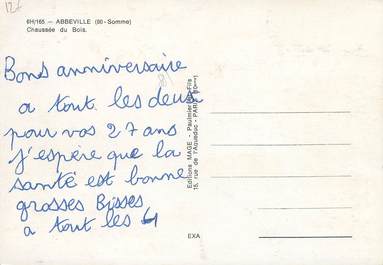 12f
6H/165 — ABBEVILLE (80-Somme)
Chaussée du Bois.
Bons anniversaire
a tout les deux
pour vos 27 ans
j'espère que la
santé est bonne
grosses Bisses
a tout les 4
Editions MAGE - Paulmier et Fils
15, rue de l'Aqueduc - PARIS (10ème)
EXA